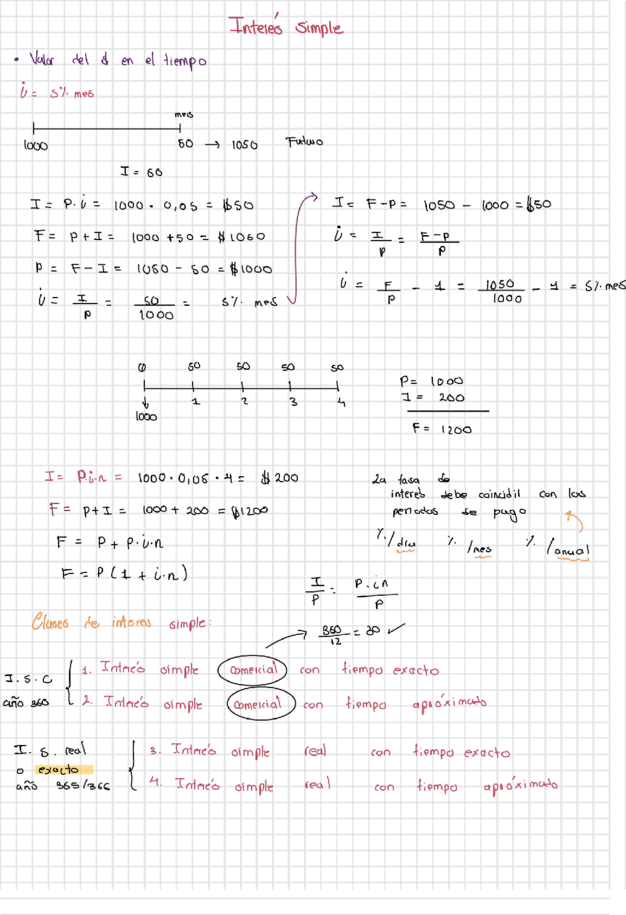 Interés simple
• Valor del $ en el tiempo
i = 5% mes
mes
1000 50 → 1050 Futuro
I = 50
I = P·i = 1000 · 0,05 = $50
F = P + I = 1000 + 50 = $1050
P = F - I = 1050 - 50 = $1000
i = I/P = 50/1000 = 5% mes
I = F - P = 1050 - 1000 = $50
i = I/P = F-P/P
i = F/P - 1 = 1050/1000 - 1 = 5% mes
0 50 50 50 50
1 2 3 4
1000
P = 1000
I = 200
F = 1200
I = P·i·n = 1000 · 0,05 · 4 = $200
F = P + I = 1000 + 200 = $1200
F = P + P·i·n
F = P(1 + i·n)
La tasa de
interes debe coincidil con los
periodos de pago
%/dia %/mes %/anual
I/P = P·in/P
Clases de interes simple:
360/12 = 30 ✓
I.S.C
año 360
1. Interés simple comercial con tiempo exacto
2. Interés simple comercial con tiempo apróximado
I. S. real
o exacto
año 365/366
3. Interés simple real con tiempo exacto
4. Interés simple real con tiempo apróximado